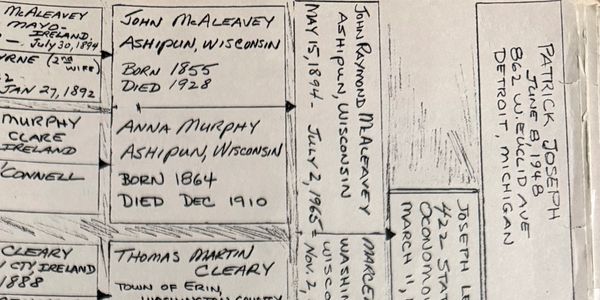 McALEAVEY
MAYO-
IRELAND.
- July 30, 1894
YRNE (2ND WIFE)
JAN 27, 1892
MURPHY
CLARE
IRELAND
CONNELL
CLEARY
CTY IRELAND
1888
JOHN McALEAVEY
ASHIPUN, WISCONSIN
BORN 1855
DIED 1928
ANNA MURPHY
ASHIPUN, WISCONSIN
BORN 1864
DIED DEC 1910
THOMAS MARTIN
CLEARY
TOWN OF ERIN,
WASHINGTON COUNTY
JOHN RAYMOND McALEAVEY
ASHIPUN, WISCONSIN
MAY 15, 1894- JULY 2, 1965
MARCE
WASHIN
WISCO
NOV. 2,
JOSEPH LE
422 STAT
OCONOMO
MARCH 11,
PATRICK JOSEPH
JUNE 8, 1948
862 W. EUCLID AVE
DETROIT, MICHIGAN